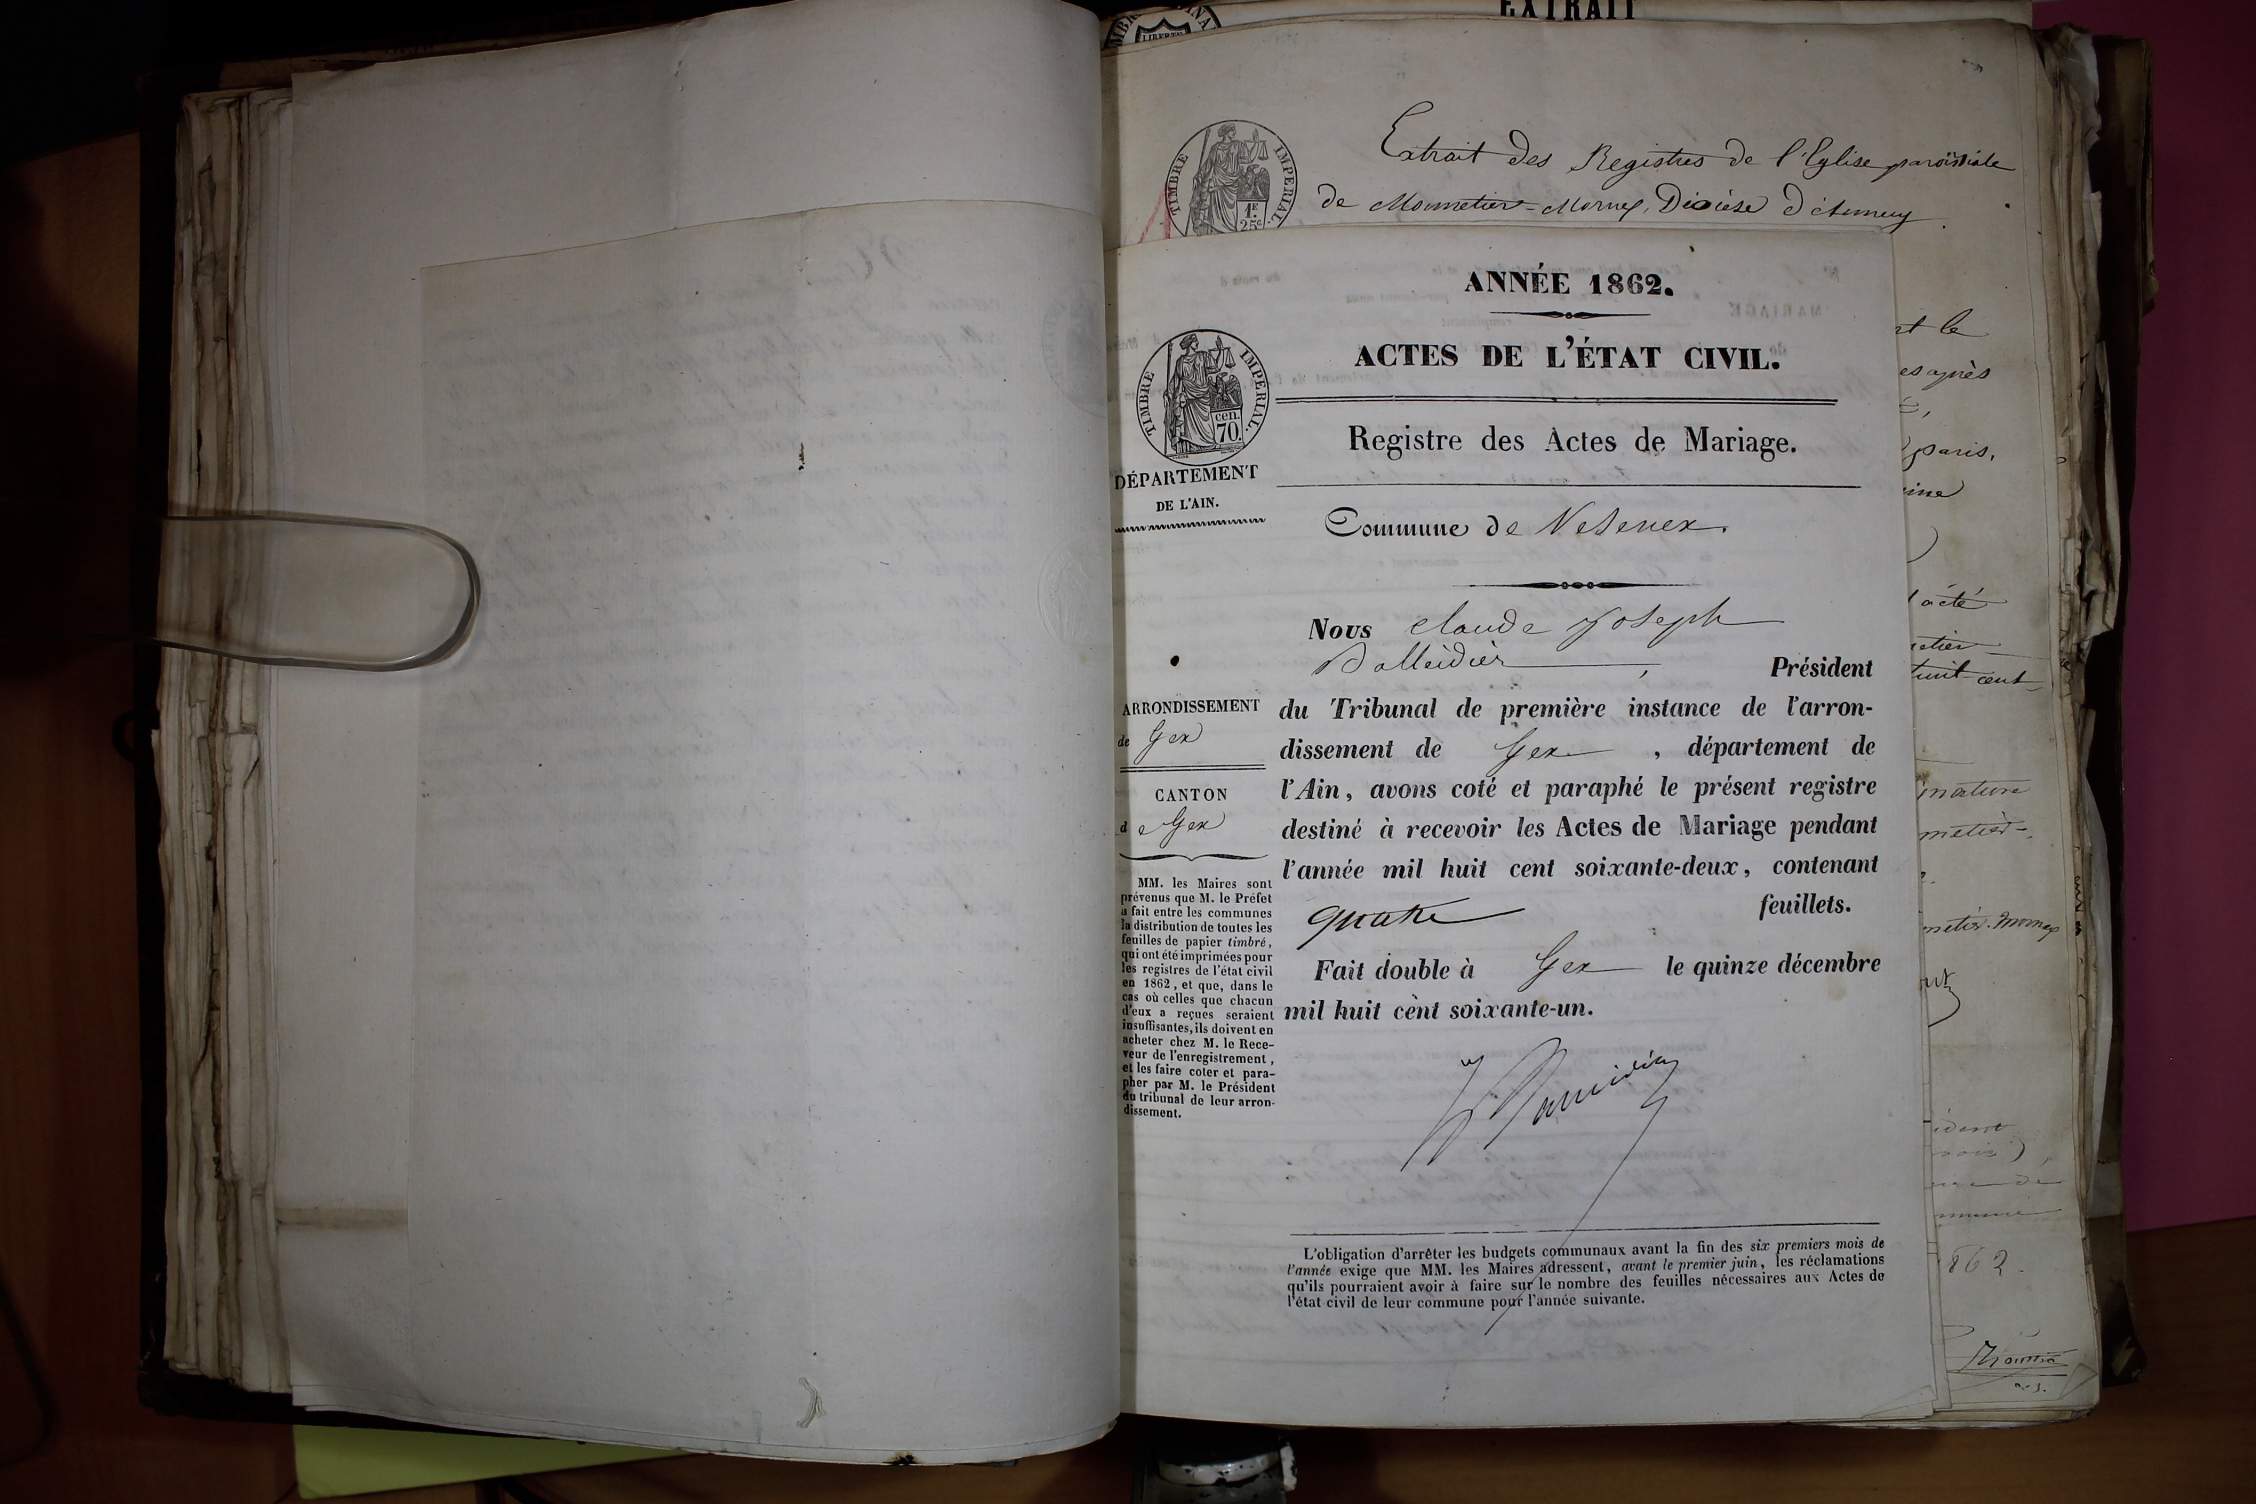 EXTRAIT
LIBERTÉ
Extrait des Registres de l'Eglise paroissiale
de Monnetier-Mornex, Diocèse d'Annecy.
TIMBRE IMPERIAL.
1F.
25c
ANNÉE 1862.
ACTES DE L'ÉTAT CIVIL.
Registre des Actes de Mariage.
TIMBRE IMPERIAL.
cen.
70.
DÉPARTEMENT
DE L'AIN.
Commune de Vesenex.
Nous Claude Joseph
, Président
du Tribunal de première instance de l'arron-
dissement de Gex, département de
l'Ain, avons coté et paraphé le présent registre
destiné à recevoir les Actes de Mariage pendant
l'année mil huit cent soixante-deux, contenant
quatre feuillets.
Fait double à Gex le quinze décembre
mil huit cent soixante-un.
ARRONDISSEMENT
de Gex
CANTON
de Gex
MM. les Maires sont
prévenus que M. le Préfet
a fait entre les communes
la distribution de toutes les
feuilles de papier timbré,
qui ont été imprimées pour
les registres de l'état civil
en 1862, et que, dans le
cas où celles que chacun
d'eux a reçues seraient
insuffisantes, ils doivent en
acheter chez M. le Rece-
veur de l'enregistrement,
et les faire coter et para-
pher par M. le Président
du tribunal de leur arron-
dissement.
L'obligation d'arrêter les budgets communaux avant la fin des six premiers mois de
l'année exige que MM. les Maires adressent, avant le premier juin, les réclamations
qu'ils pourraient avoir à faire sur le nombre des feuilles nécessaires aux Actes de
l'état civil de leur commune pour l'année suivante.
le
après
paris,
acté
cent